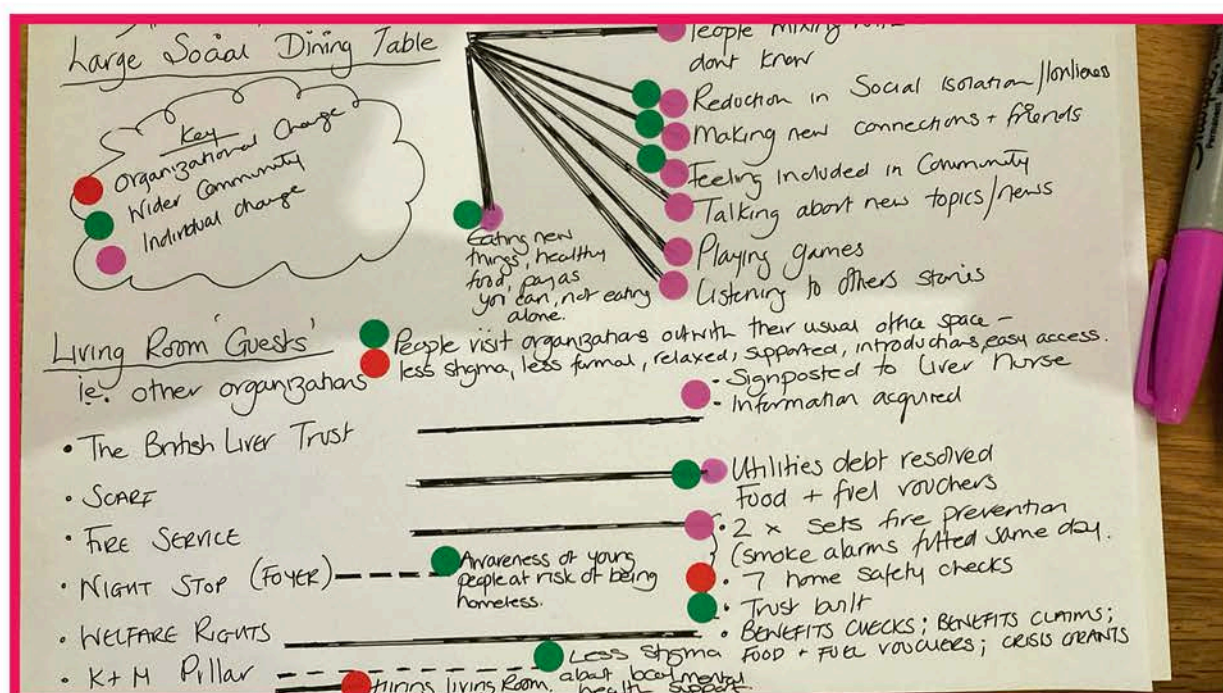 Large Social Dining Table
People mixing
dont know
Key
Organizational Change
Wider Community
Individual change
Reduction in Social Isolation/lonliness
Making new connections + friends
Feeling Included in Community
Talking about new topics/news
Playing games
Listening to others stories
Eating new
things, healthy
food, pay as
you can, not eating
alone.
Living Room 'Guests'
i.e. other organizations
People visit organizations outwith their usual office space -
less stigma, less formal, relaxed, supported, introductions, easy access.
• The British Liver Trust
• Signposted to Liver Nurse
• Information acquired
• SCARF
Utilities debt resolved
Food + fuel vouchers
• FIRE SERVICE
• 2 x sets fire prevention
(smoke alarms fitted same day.
• 7 home safety checks
• Trust built
• NIGHT STOP (FOYER)
Awareness of young
people at risk of being
homeless.
• WELFARE RIGHTS
• BENEFITS CHECKS; BENEFITS CLAIMS;
FOOD + FUEL VOUCHERS; CRISIS GRANTS
• K+M Pillar
Less stigma
about local mental
health support.
Living Room.
Sharpie
Permanent